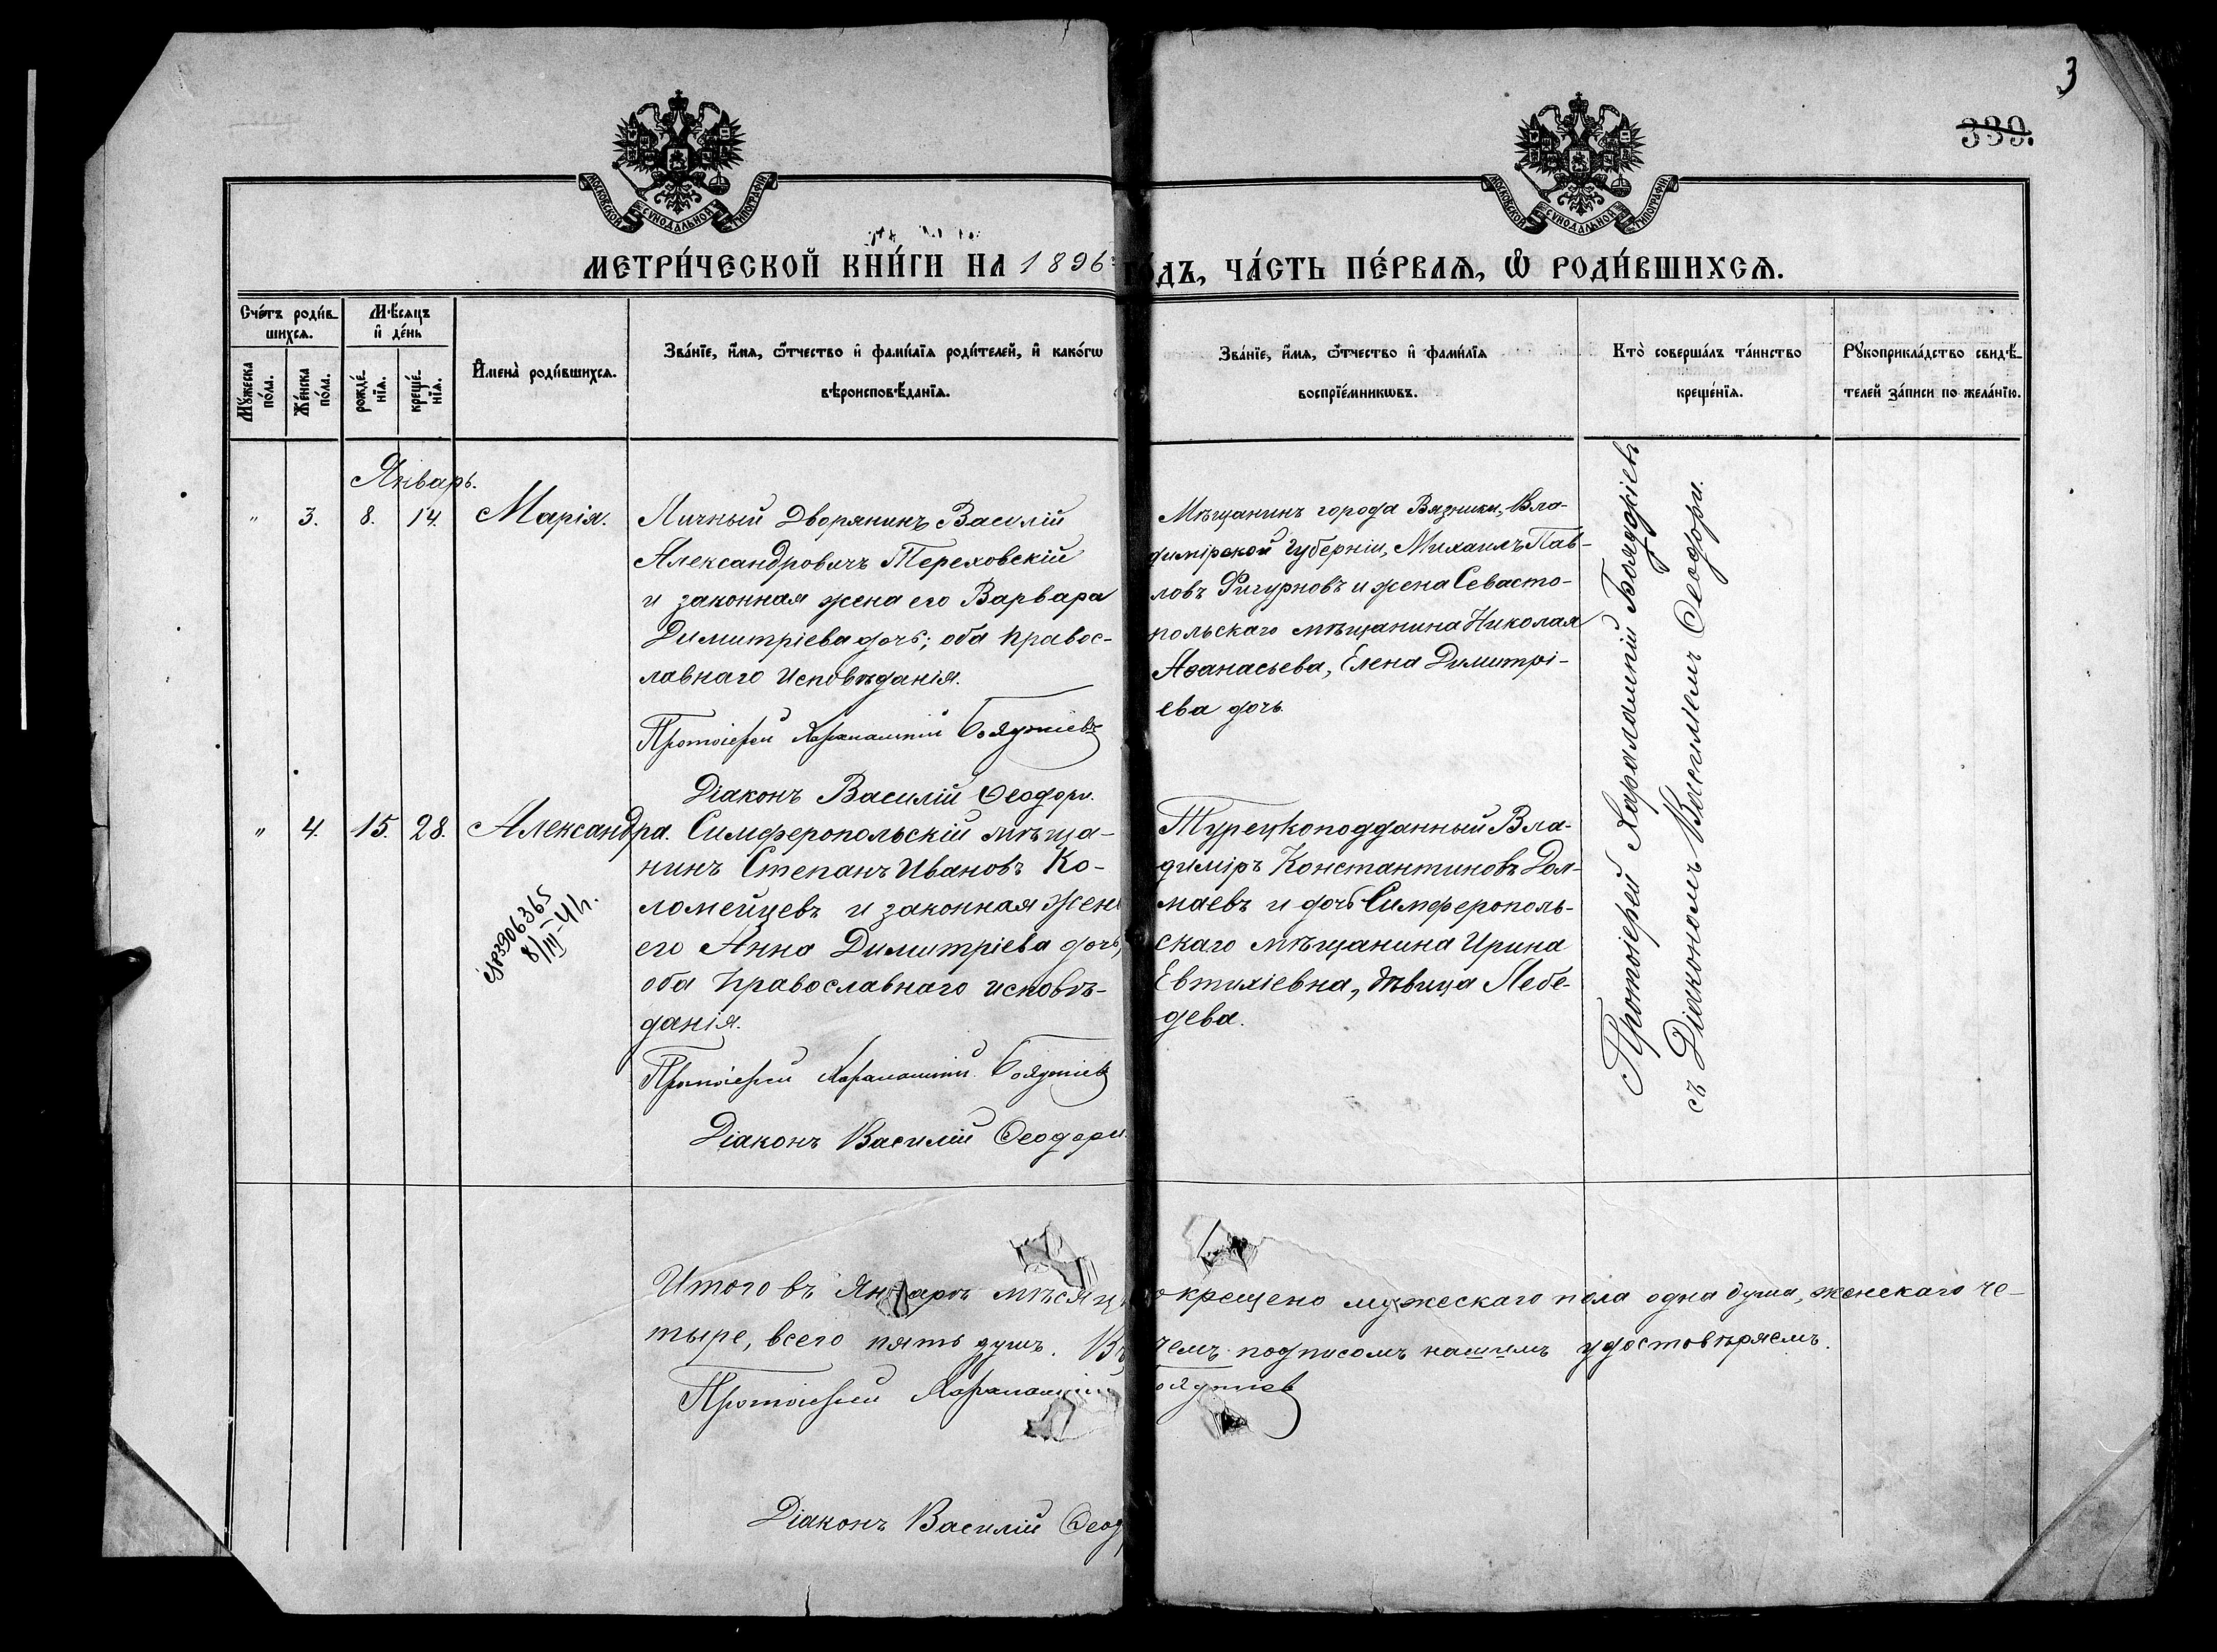 3
339.
МОСКОВСКОЙ СѴНОДАЛЬНОЙ ТИПОГРАФІИ
МОСКОВСКОЙ СѴНОДАЛЬНОЙ ТИПОГРАФІИ
МЕТРИ́ЧЕСКОЙ КНИ́ГИ НА 1896 ГО́ДЪ, ЧА́СТЬ ПЕ́РВАѦ, Ѽ РОДИ́ВШИХСѦ.
Сче́тъ роди́в-
шихсѧ.
Мꙋ́жеска по́ла.
Же́нска по́ла.
Мѣ́сѧцъ
и҆ де́нь
рожде́нїѧ.
креще́нїѧ.
И҆мена̀ роди́вшихсѧ.
Зва́нїе, и҆́мѧ, ѻ҆́тчество и҆ фами́лїѧ роди́телей, и҆ како́гѡ
вѣроисповѣ́данїѧ.
Зва́нїе, и҆́мѧ, ѻ҆́тчество и҆ фами́лїѧ
воспрїе́мникѡвъ.
Кто̀ соверша́лъ та́инство
креще́нїѧ.
Рꙋкоприкла́дство свидѣ́-
телей за́писи по жела́нїю.
Январь.
" 3. 8. 14. Марія.
Личный Дворянинъ Василій
Александровичъ Тереховскій
и законная жена его Варвара
Димитріева дочь; оба правос-
лавнаго исповѣданія.
Протоіерей Харалампій Бояджіевъ
Діаконъ Василій Ѳеодори.
Мѣщанинъ города Вязники, Вла-
димірской губерніи, Михаилъ Пав-
ловъ Фигурновъ и жена Севасто-
польскаго мѣщанина Николая
Аѳанасьева, Елена Димитрі-
ева дочь.
Протоіерей Харалампій Бояджіевъ
съ Діакономъ Василіемъ Ѳеодори.
" 4. 15. 28. Александра.
Симферопольскій мѣща-
нинъ Степанъ Ивановъ Ко-
ломейцевъ и законная жена
его Анна Димитріева дочь,
оба православнаго исповѣ-
данія.
Протоіерей Харалампій Бояджіевъ
Діаконъ Василій Ѳеодори.
Турецкоподданный Вла-
диміръ Константиновъ Дол-
маевъ и дочь Симферополь-
скаго мѣщанина Ирина
Евтихіевна, дѣвица Лебе-
дева.
3906365
8/III-41
Итого въ Январѣ мѣсяцѣ крещено мужескаго пола одна душа, женскаго че-
тыре, всего пять душъ. Въ чемъ подписомъ нашимъ удостовѣряемъ.
Протоіерей Харалампій Бояджіевъ
Діаконъ Василій Ѳеод